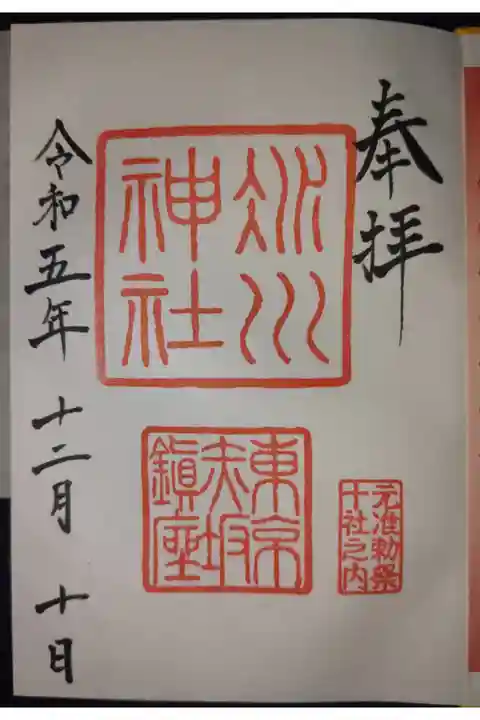 奉拝
氷川
神社
東京
赤坂
鎮座
元准勅祭
十社之内
令和五年 十二月 十日